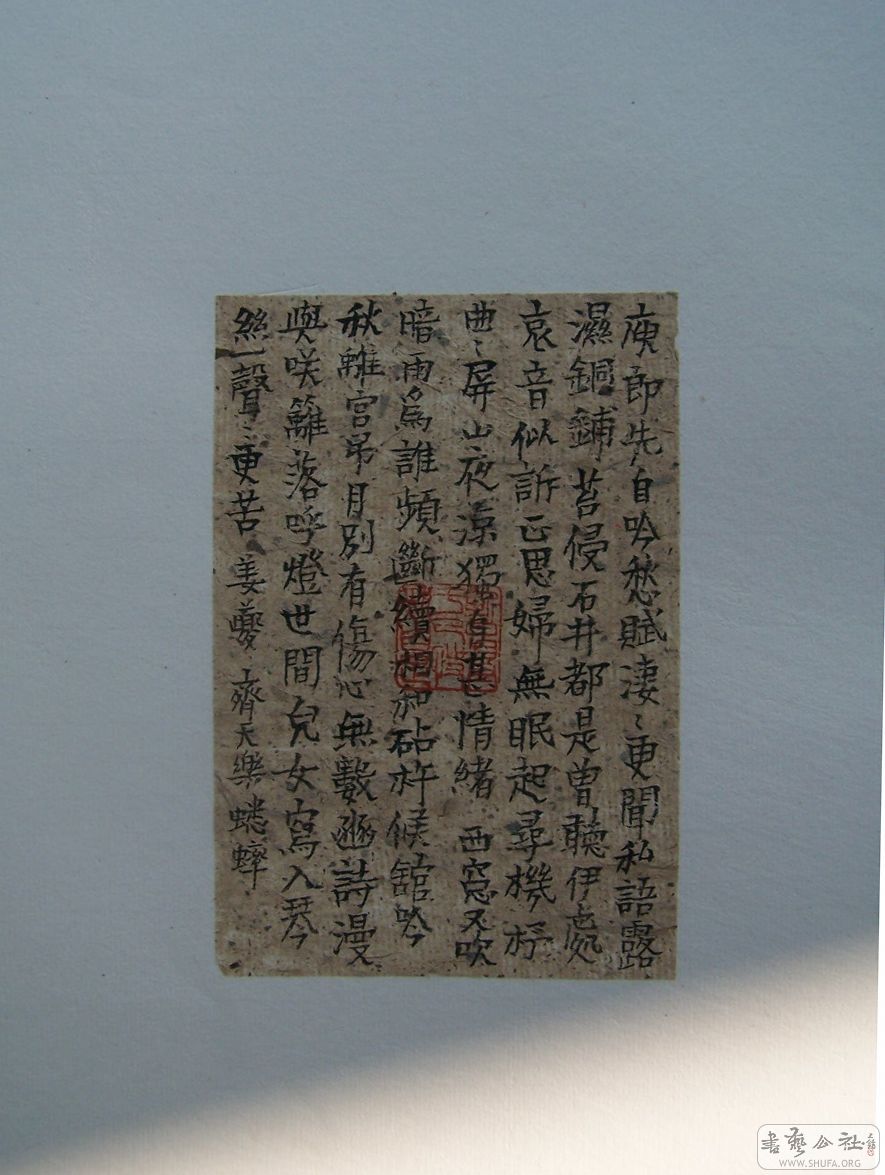 庾郎先自吟愁賦淒〻更聞私語露
濕銅鋪苔侵石井都是曾聽伊處
哀音似訴正思婦無眠起尋機杼
曲〻屏山夜涼獨自甚情緒 西窓又吹
暗雨爲誰頻斷續相和砧杵候舘吟
秋離宮吊月別有傷心無數豳詩漫
與咲籬落呼燈世間兒女寫入琴
絲一聲〻更苦 姜夔 齊天樂 蟋蟀
書藝公社
WWW.SHUFA.ORG